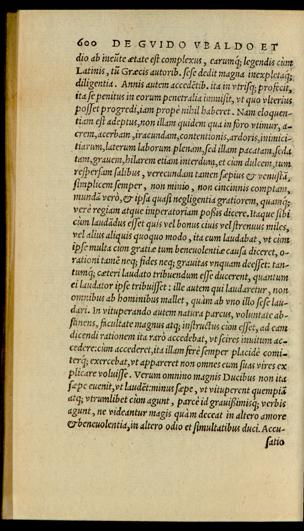 600 DE GVIDO VBALDO ET
dio ab ineũte ætate est complexus, earumq; legendis cùm
Latinis, tũ Græcis autorib. sese dedit magna inexpletaq;
diligentia. Annis autem accedẽtib. ita in vtrisq; proficit,
ita se penitus in eorum penetralia immisit, vt quo vlterius
posset progredi, iam propè nihil haberet. Nam eloquen-
tiam est adeptus, non illam quidem qua in foro vtimur, a-
crem, acerbam, iracundam, contentionis, ardoris, inimici-
tiarum, laterum laborum plenam, sed illam pacatam, seda
tam, grauem, hilarem etiam interdum, et cùm dulcem, tum
respersam salibus, verecundam tamen sæpius & venustã,
simplicem semper, non minio, non cincinnis comptam,
mundã verò, & ipsa quasi negligentia gratiorem, quamq;
verè regiam atque imperatoriam possis dicere. Itaque sibi
cùm laudãdus esset quis vel bonus ciuis vel strenuus miles,
vel alius aliquis quoquo modo, ita eum laudabat, vt cùm
ipse multa cùm gratiæ tum beneuolentiæ causa diceret, o-
rationi tamẽ neq; fides neq; grauitas vnquam deesset: tan-
tumq; cæteri laudato tribuendum esse ducerent, quantum
ei laudator ipse tribuisset: ille autem qui laudaretur, non
omnibus ab hominibus mallet, quàm ab vno illo sese lau-
dari. In vituperando autem natura parcus, voluntate ab-
stinens, facultate magnus atq; instructus cùm esset, ad eam
dicendi rationem ita rarò accedebat, vt scires inuitum ac-
cedere: cùm accederet, ita illam ferè semper placidè comi-
terq; exercebat, vt appareret non omnes eum suas vires ex
plicare voluisse. Verum omnino magnis Ducibus non ita
sæpe euenit, vt laudẽt: minus sæpe, vt vituperent quempiã
atq; vtrumlibet cùm agunt, parcè id grauißimisq; verbis
agunt, ne videantur magis quàm deceat in altero amore
& beneuolentia, in altero odio et simultatibus duci. Accu-
satio